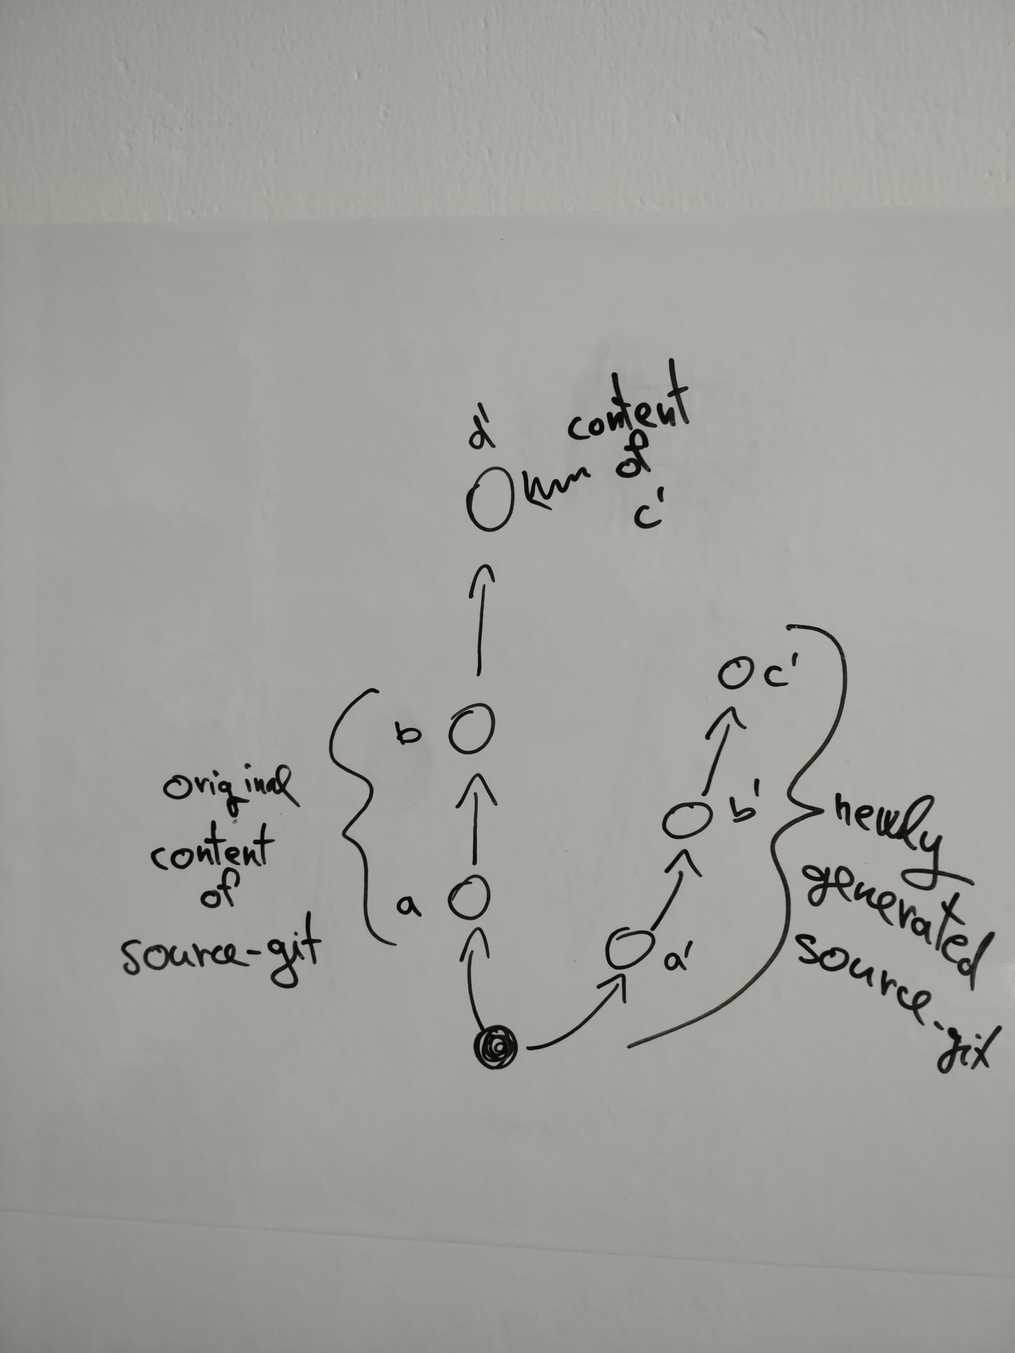 d'
content
of
c'
c'
b
b'
original
content
of
source-git
newly
generated
source-git
a
a'